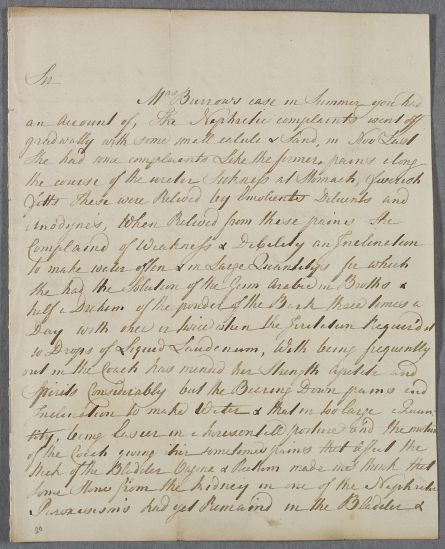 Sir
Mrs Burrows case in Summer you had
an Account of, The Nephretic complaints went off
gradually with some small calculi & Sand, in Novr Last
She had some complaints Like the former, pains along
the course of the ureter Sickness at Stomach, feverish
fitts These were Relived by Emolients Diluents and
Anodynes, When Relived from these pains She
Complaind of Weakness & Debility an Inclination
to make water often & in Large Quantitys for which
She had the Solution of the Gum Arabic in Broths &
half a Drachm of the pouder of the Bark three times a
Day with once or twice when the Irritation Required it
10 Drops of Liquid Laudenum, With being frequently
out in the Coach has mended her Strength Apetite and
Spirits Considerably but the Bearing Down pains and
Inclination to make Water & that in too large a Quan
tity, being Easier in a horesentall posture and the motion
of the Coach giving her sometimes pains that affect the
Neck of the Bladder and Rectum made me think that
Some Stone from the kidney in one of the Nephretic
Paroxisisms had yet Remaind in the Bladder &
20